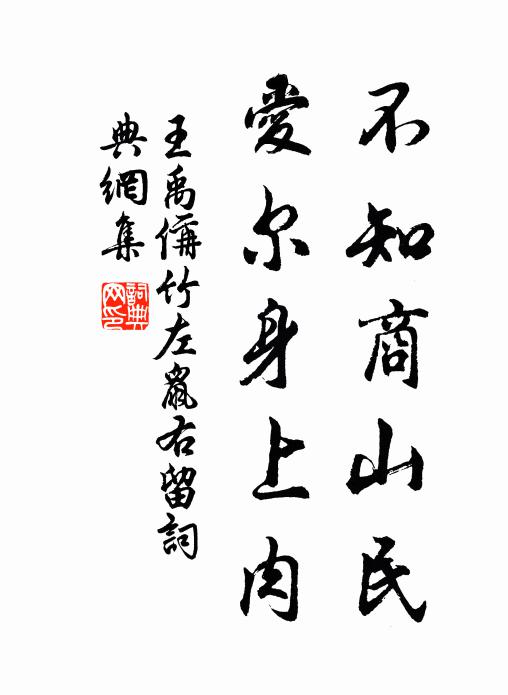 不知商山民
愛尔身上肉
王禹偁竹左鼠右留詞
典網集
詞典网印